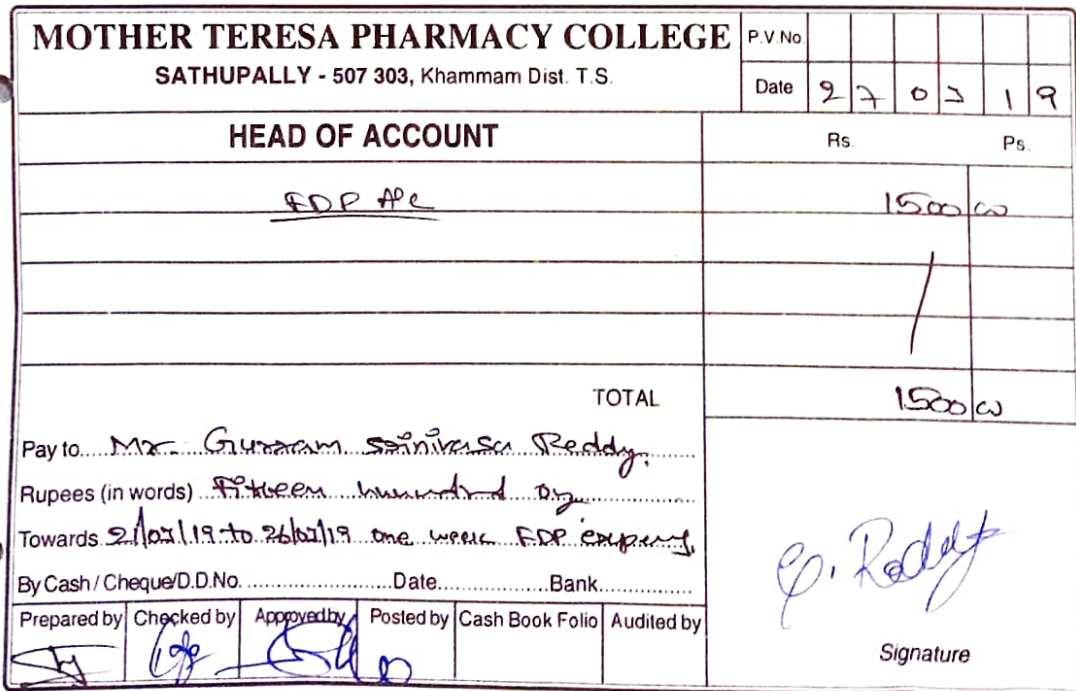 MOTHER TERESA PHARMACY COLLEGE
SATHUPALLY - 507 303, Khammam Dist. T.S.
P.V.No.
Date 27 03 19
HEAD OF ACCOUNT Rs. Ps.
FDP A/c 1500 00
TOTAL 1500 00
Pay to Mr. Gurram Srinivasa Reddy.
Rupees (in words) Fifteen hundred
Towards 21/03/19 to 26/03/19 one week FDP
By Cash / Cheque/D.D.No. Date Bank
Prepared by Checked by Approved by Posted by Cash Book Folio Audited by
G. Reddy
Signature